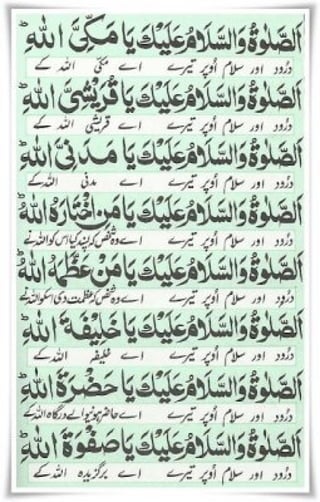 اَلصَّلٰوةُ وَالسَّلَامُ عَلَيْكَ يَا مَكِّيَّ اللهِ ؕ
درود اور سلام اُوپر تیرے اے مکی اللہ کے
اَلصَّلٰوةُ وَالسَّلَامُ عَلَيْكَ يَا قُرَيْشِيَّ اللهِ ؕ
درود اور سلام اُوپر تیرے اے قریشی اللہ کے
اَلصَّلٰوةُ وَالسَّلَامُ عَلَيْكَ يَا مَدَنِيَّ اللهِ ؕ
درود اور سلام اُوپر تیرے اے مدنی اللہ کے
اَلصَّلٰوةُ وَالسَّلَامُ عَلَيْكَ يَا مَنِ اخْتَارَهُ اللهُ ؕ
درود اور سلام اُوپر تیرے اے وہ شخص کہ پسند کیا اس کو اللہ نے
اَلصَّلٰوةُ وَالسَّلَامُ عَلَيْكَ يَا مَنْ عَظَّمَهُ اللهُ ؕ
درود اور سلام اُوپر تیرے اے وہ شخص کہ عظمت دی اسکو اللہ نے
اَلصَّلٰوةُ وَالسَّلَامُ عَلَيْكَ يَا خَلِيْفَةَ اللهِ ؕ
درود اور سلام اُوپر تیرے اے خلیفہ اللہ کے
اَلصَّلٰوةُ وَالسَّلَامُ عَلَيْكَ يَا حَضْرَةَ اللهِ ؕ
درود اور سلام اُوپر تیرے اے حاضر ہونیوالے درگاہ اللہ کے
اَلصَّلٰوةُ وَالسَّلَامُ عَلَيْكَ يَا صَفْوَةَ اللهِ ؕ
درود اور سلام اُوپر تیرے اے برگزیدہ اللہ کے